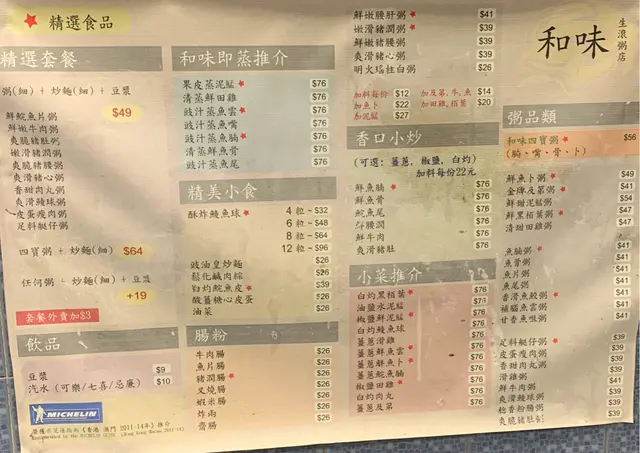 ★ 精選食品
精選套餐
粥(細) + 炒麵(細) + 豆漿
$49
鮮鯇魚片粥
鮮嫩牛肉粥
爽脆豬肚粥
爽脆豬腰粥
嫩滑豬潤粥
爽滑豬心粥
香甜肉丸粥
皮蛋瘦肉粥
足料艇仔粥
四寶粥 + 炒麵(細) $64
任何粥 + 炒麵(細) + 豆漿
+19
套餐外賣加$3
飲品
豆漿 $9
汽水 (可樂/七喜/忌廉) $10
MICHELIN
和味即蒸推介
果皮蒸泥鯭★ $76
清蒸鮮田雞 $76
豉汁蒸魚雲★ $76
豉汁蒸魚嘴 $76
豉汁蒸魚腩★ $76
清蒸鮮魚骨 $76
豉汁蒸魚尾 $76
精美小食
酥炸鯪魚球★ 4 粒–$32
6 粒–$48
8 粒–$64
12 粒–$96
豉油皇炒麵 $26
鬆化鹹肉粽 $26
白灼鯇魚皮★ $39
酸薑糖心皮蛋 $26
油菜 $26
腸粉
牛肉腸 $26
魚片腸 $26
豬潤腸★ $26
叉燒腸 $26
蝦米腸 $26
炸雨 $26
齋腸 $26
鮮嫩腰肝粥★ $41
嫩滑豬潤粥★ $39
鮮嫩豬腰粥 $39
爽滑豬心粥 $39
明火瑤柱白粥 $26
加料每份 $12
加魚卜 $22
加泥鯭 $27
加及第, 牛, 魚 $14
加田雞, 栢葉 $20
香口小炒
(可選: 薑蔥, 椒鹽, 白灼)
加料每份22元
鮮魚腩★ $76
鮮魚骨 $76
鯇魚尾 $76
鮮腰潤 $76
鮮牛肉 $76
爽滑豬肚 $76
小菜推介
白灼黑栢葉★ $76
油鹽水泥鯭 $76
椒鹽鮮泥鯭★ $76
白灼鯪魚球 $76
薑蔥滑雞 $76
薑蔥鮮魚雲★ $76
薑蔥鮮魚卜★ $76
薑蔥鯇魚腩 $76
椒鹽田雞★ $76
白灼肉丸 $76
薑蔥及第 $76
和味
生滾粥店
粥品類
和味四寶粥★ $56
(腩、嘴、骨、卜)
鮮魚卜粥★ $49
金牌及第粥★ $41
鮮甜泥鯭粥 $54
鮮黑栢葉粥★ $47
清甜田雞粥 $47
魚腩粥★ $41
魚骨粥 $41
魚片粥 $41
魚尾粥 $41
香滑魚餃粥★ $41
補腦魚雲粥 $41
甘香魚咀粥 $41
足料艇仔粥★ $39
皮蛋瘦肉粥 $39
香甜肉丸粥 $39
滑雞粥 $41
鮮牛肉粥 $39
爽滑鯪球粥 $39
爽脆豬肚粥 $39